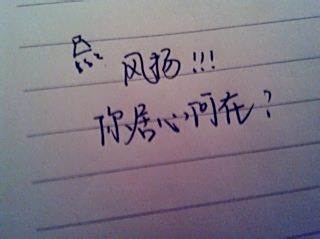 风扬!!!
你居心何在?